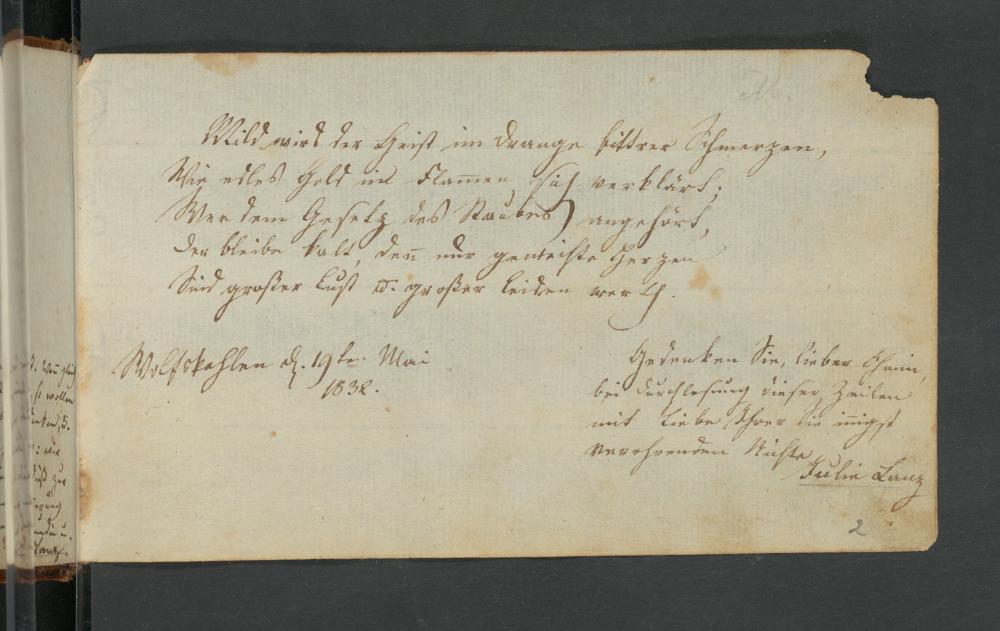 Mild wird der Geist im Drange bittrer Schmerzen,
Wie edles Gold im Flam̅en sich verklärt;
Wer dem Gesetz des Staubes angehört,
Der bleibe kalt, den̅ nur geweihte Herzen
Sind großer Lust u. großer Leiden werth.
Wolfskehlen d. 19ten Mai
1832.
Gedenken Sie, lieber Oheim,
bei Durchlesung dieser Zeilen
mit Liebe Ihrer Sie in̅igst
verehrenden Nichte
Julie Lanz
2